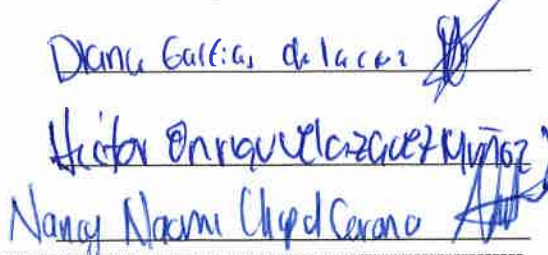 Diana Garfias de la Cruz
Hector Enrique Velazquez Muñoz
Nancy Naomi Cerano